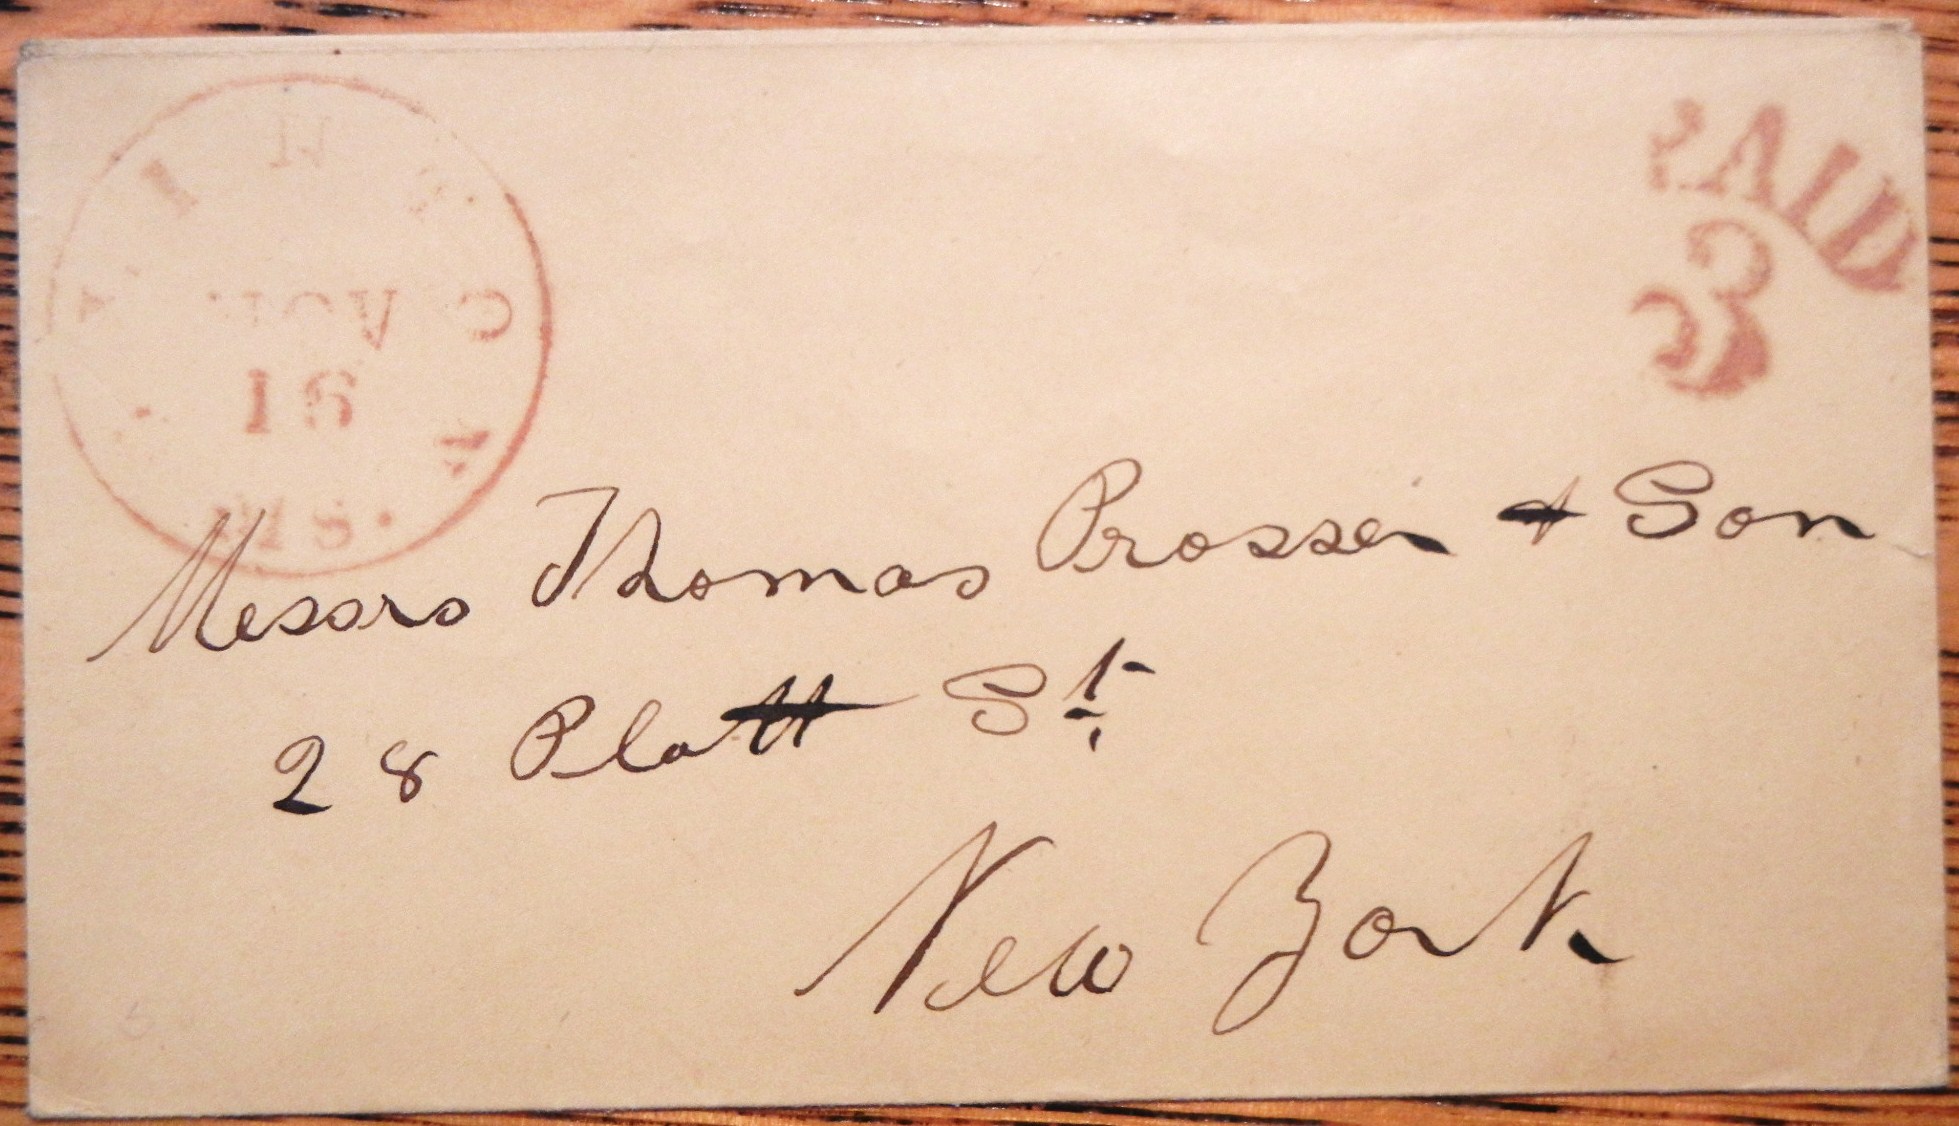 NOV
16
MS.
PAID
3
Messrs Thomas Prosser & Son
28 Platt St.
New York